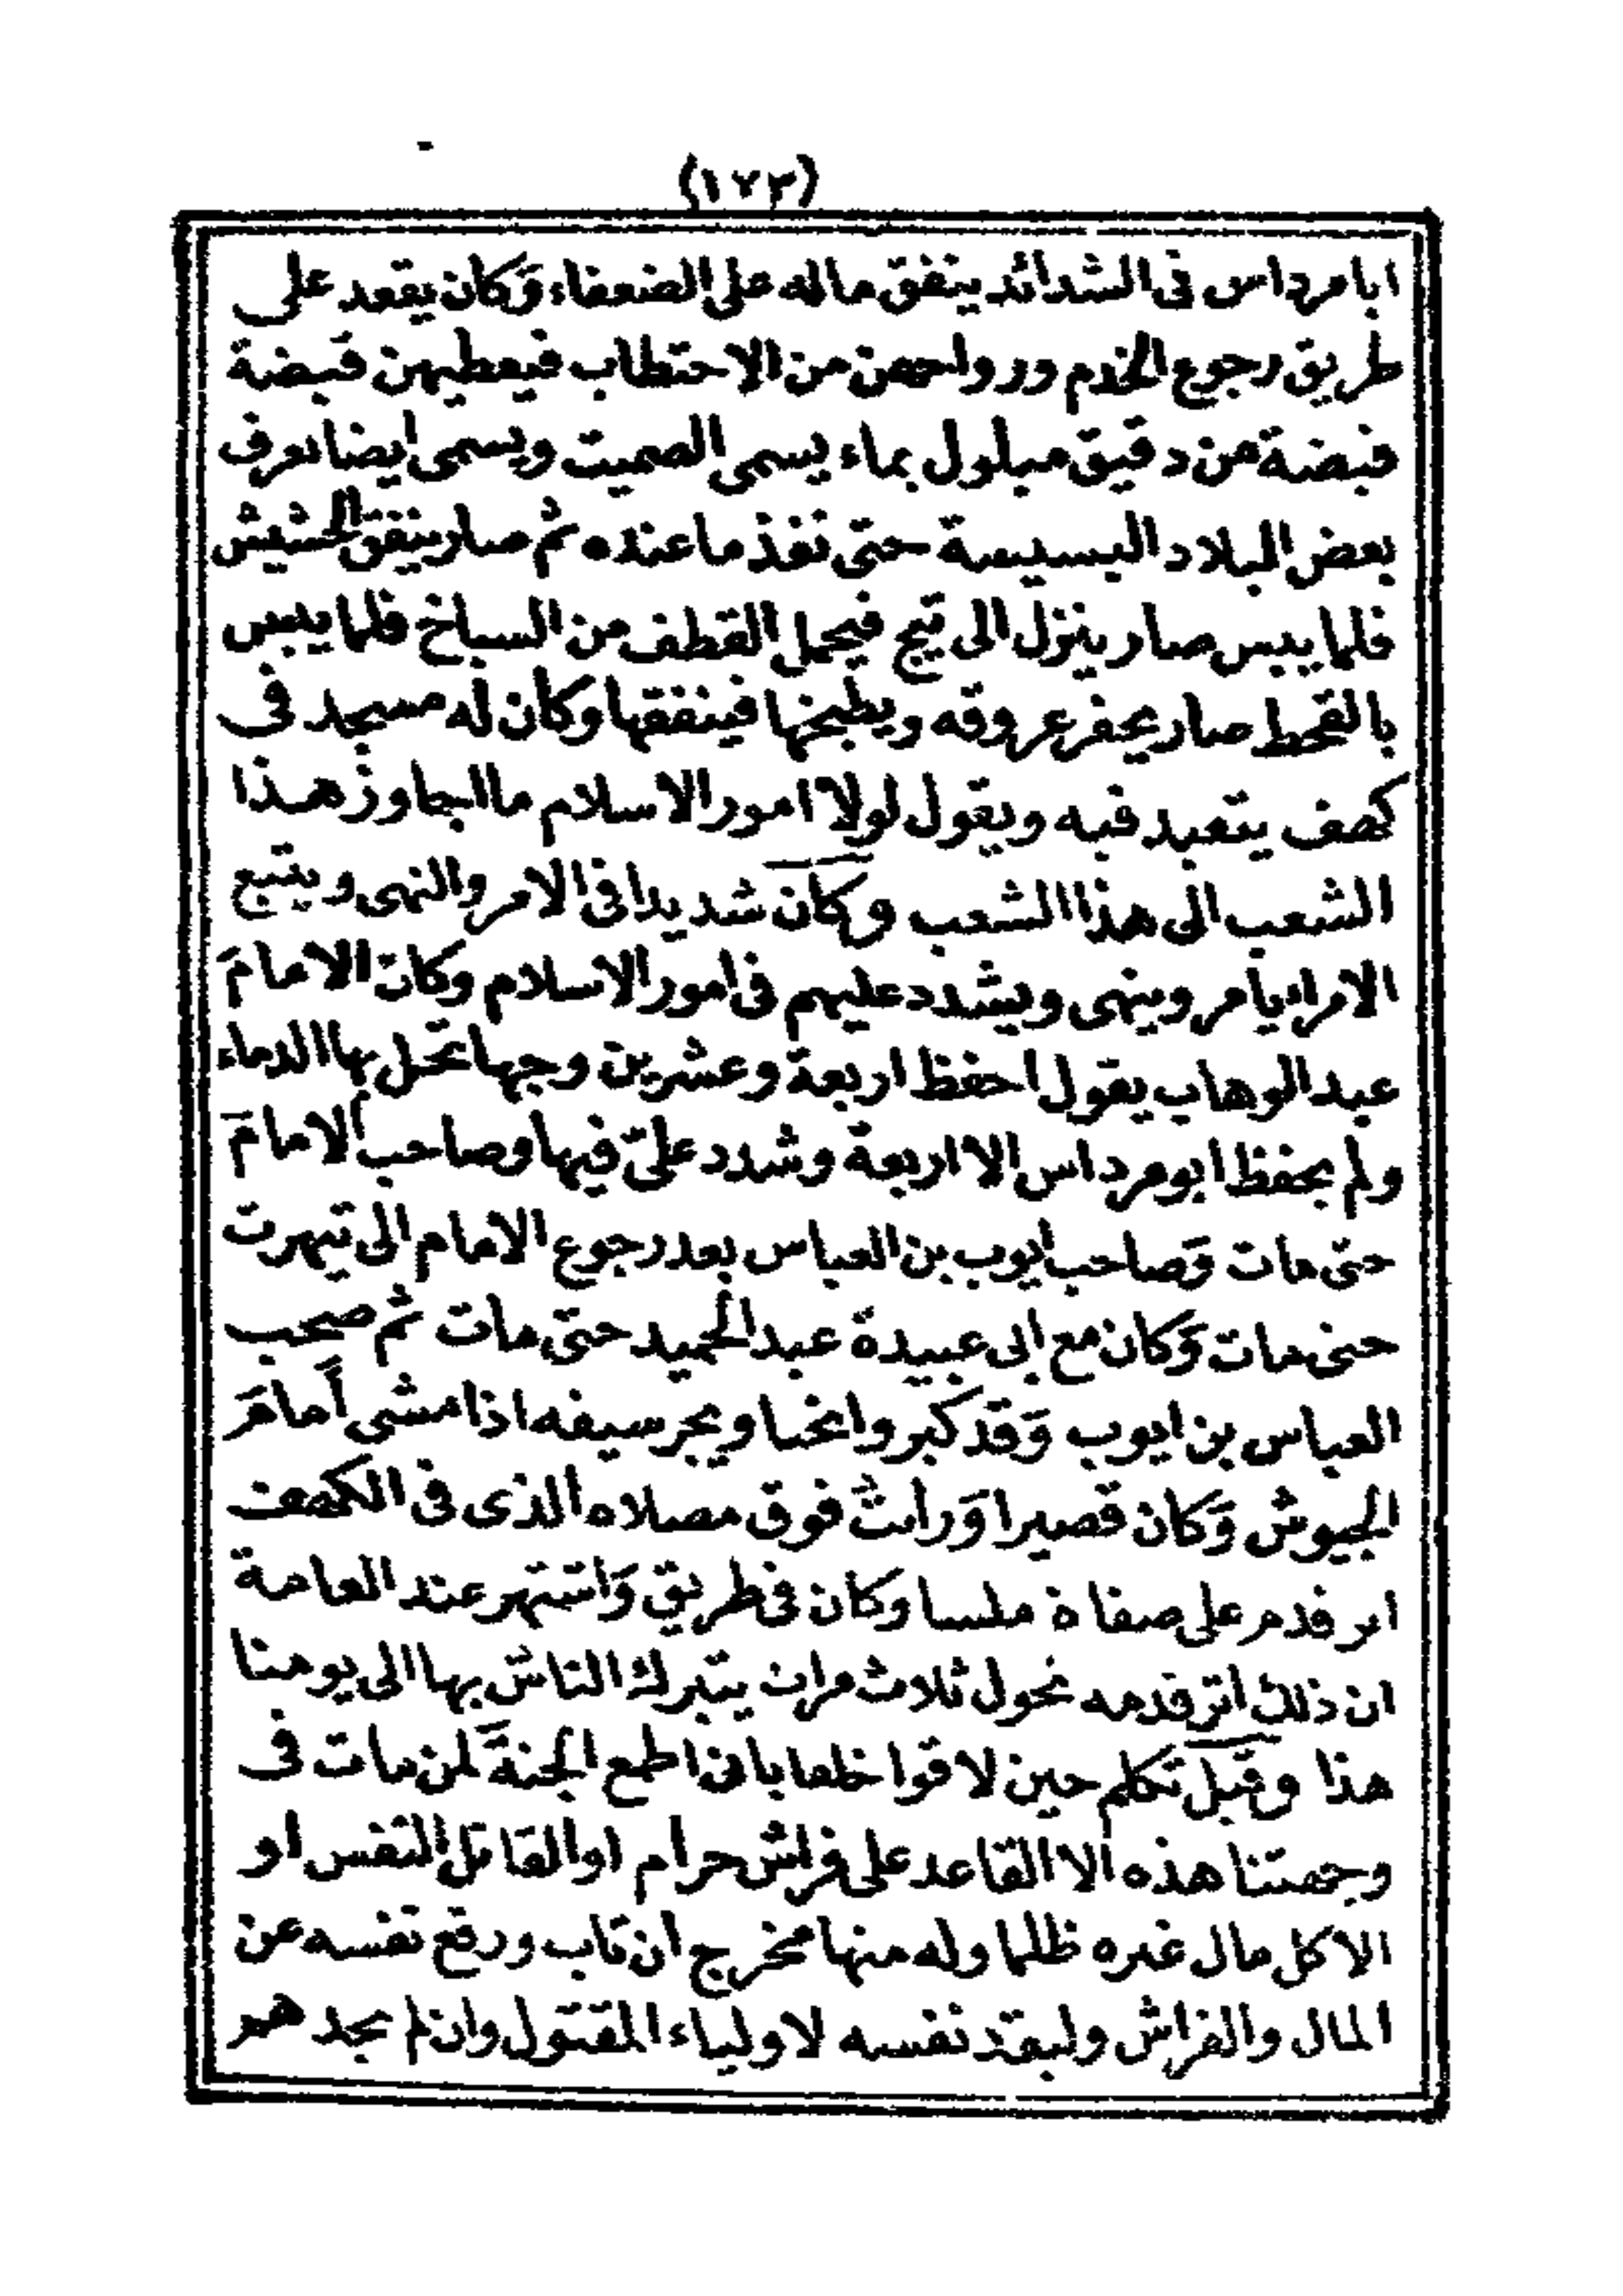 (١٧٣)
ابا مرداس فى الشدائد ينفق ماله على الضعفاء وَكان يقعد على
طريق رجوع الخدم ورواحهن من الاحتطاب فيعطيهن قبضة
قبضة من دقيق مبلول بماء يسمى الصميت ويسمى ايضا بعرف
بعض البلاد البسيسة حتى نفذ ما عنده ثم صار ينفق الحشيش
فلما يبس صار ينزل الى تيج فيحمل القطف من السباخ فلما يبس
بالقحط صار يحفر عروقه ويطبخها فينفقها وكان له مسجد فى
كهف يتعبد فيه ويقول لولا امور الاسلام ما اتجاوز هذا
الشعب الى هذا الشعب وكان شديدا فى الامر والنهى ويتبع
الامراء يامر وينهى ويشدد عليهم فى امور الاسلام وكان الامام
عبد الوهاب يقول احفظ اربعة وعشرين وجها تحل بها الدماء
ولم يحفظ ابو مرداس الا اربعة وشدد علىّ فيها وصاحب الامام
حتى مات وَصاحب ايوب بن العباس بعد رجوع الامام الى تيهرت
حتى مات وَكان مع ابى عبيدة عبد الحميد حتى مات ثم صحب
العباس بن ايوب وَقد كبر وانحنا ويجر سيفه اذا مشى أمامَ
الجيوش وَكان قصيرا وَرايت فوق مصلاه الذى فى الكهف
اثر قدم على صفاة ملسا وكان فى طريق وَاشتهر عند العامة
ان ذلك اثر قدمه نحول ثلاث مرات يتبرك الناس بها الى يومنا
هذا وقبل تكلم حين لاقوا خلفا بانى اطمع الجنة لمن مات فى
وجهتنا هذه الا القاعد على فراش حرام او القاتل النفس او
الاكل مال غيره ظلما وله منها مخرج ان تاب ورفع نفسه عن
المال والفراش وليقد نفسه لاولياء المقتول وان لم يجد هم